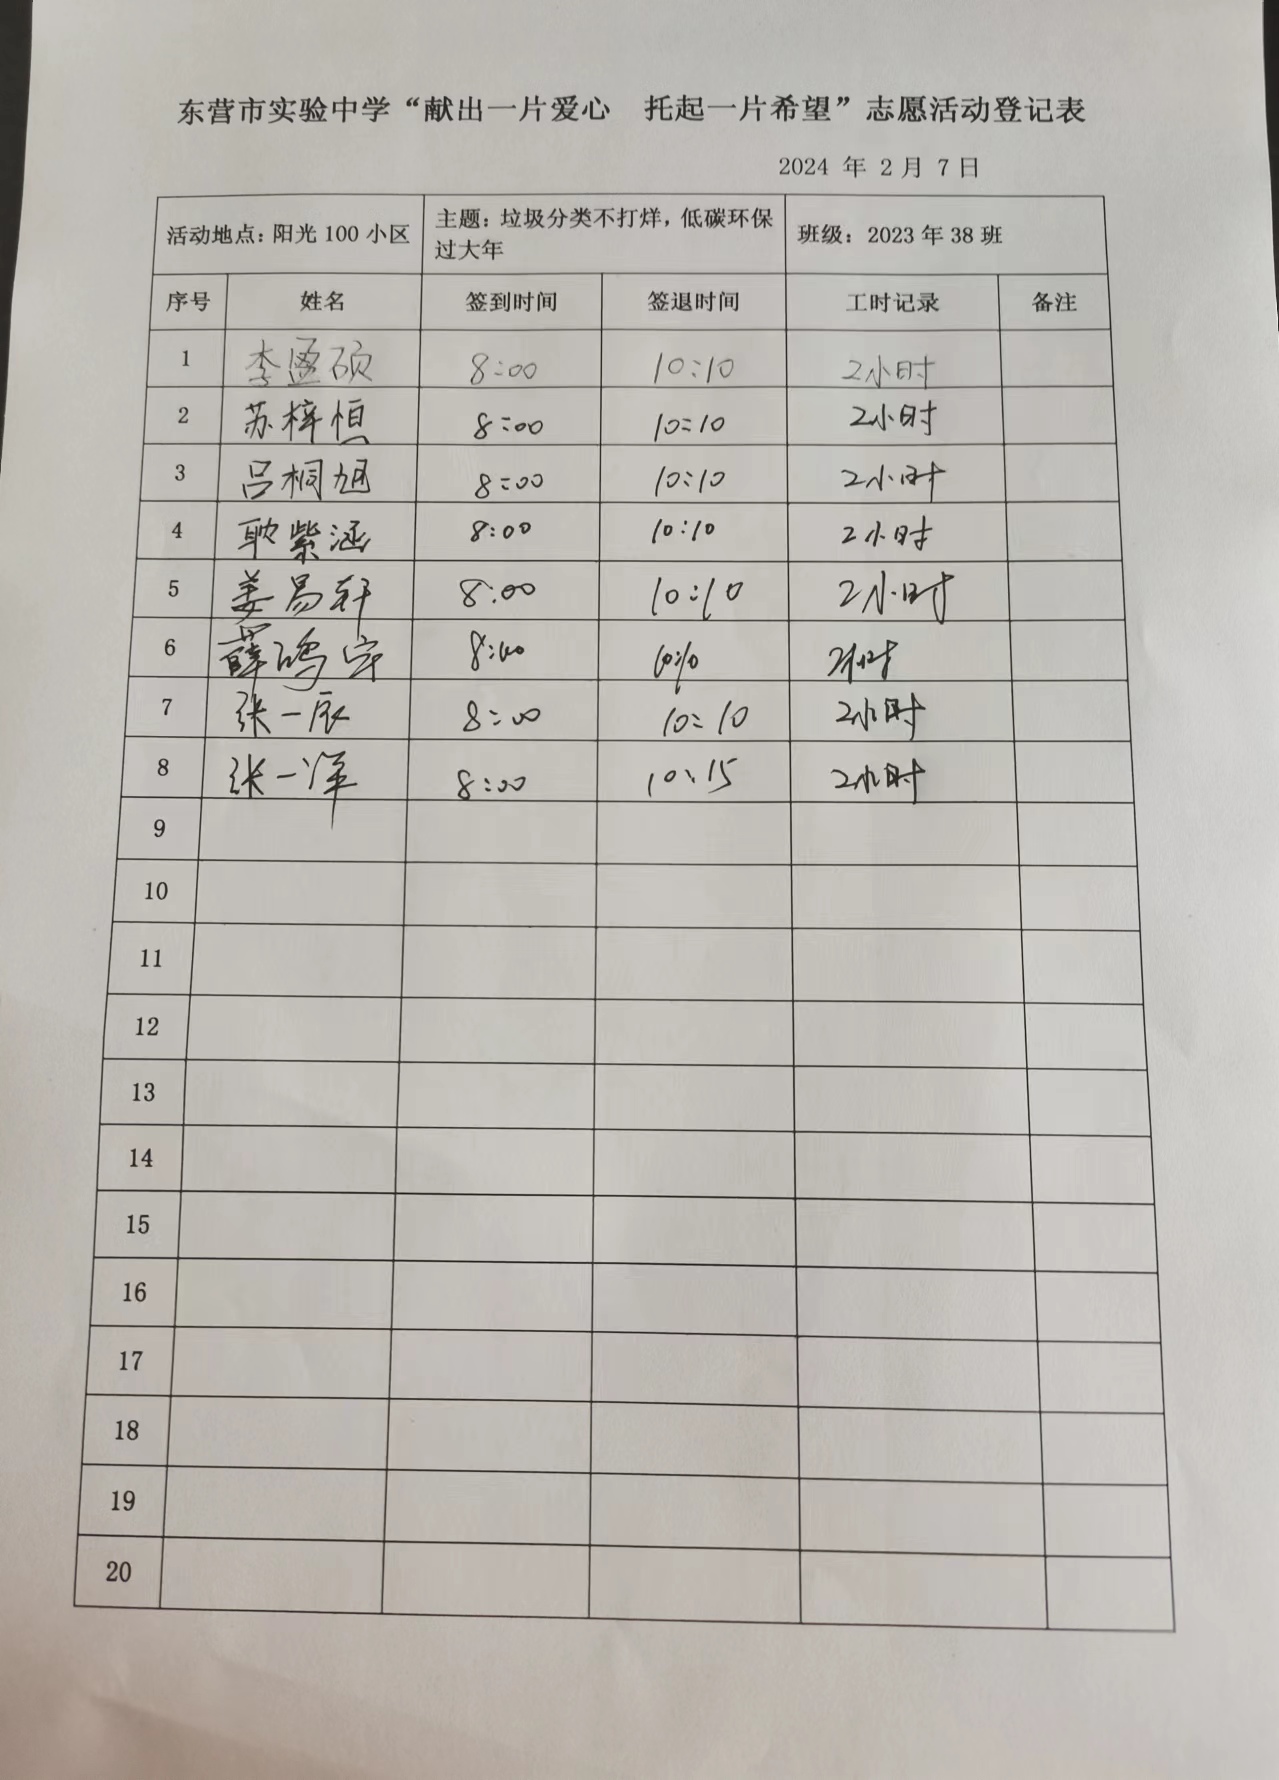 东营市实验中学“献出一片爱心 托起一片希望”志愿活动登记表
2024 年 2 月 7 日
活动地点：阳光 100 小区 主题：垃圾分类不打烊，低碳环保过大年 班级：2023 年 38 班
序号 姓名 签到时间 签退时间 工时记录 备注
1 李盈硕 8:00 10:10 2小时
2 苏梓恒 8:00 10:10 2小时
3 吕桐旭 8:00 10:10 2小时
4 耿紫涵 8:00 10:10 2小时
5 姜易轩 8:00 10:10 2小时
6 薛鸣宇 8:00 10:10 2小时
7 张一辰 8:00 10:10 2小时
8 张一泽 8:00 10:15 2小时
9
10
11
12
13
14
15
16
17
18
19
20